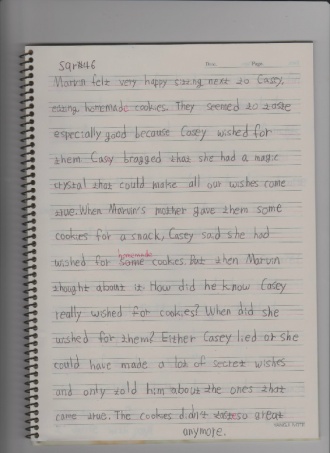 Sqr#46
Time Page
Marvin felt very happy siting next to Casey,
eating homemade cookies. They seemed to taste
especially good because Casey wished for
them Casy bragged that she had a magic
crystal that could make all our wishes come
true. When Marvin's mother gave them some
cookies for a snack, Casey said she had
homemade
wished for some cookies. But then Marvin
thought about it. How did he know Casey
really wished for cookies? When did she
wished for them? Either Casey lied or she
could have made a lot of secret wishes
and only told him about the ones that
came true. The cookies didn't taste so great
anymore.